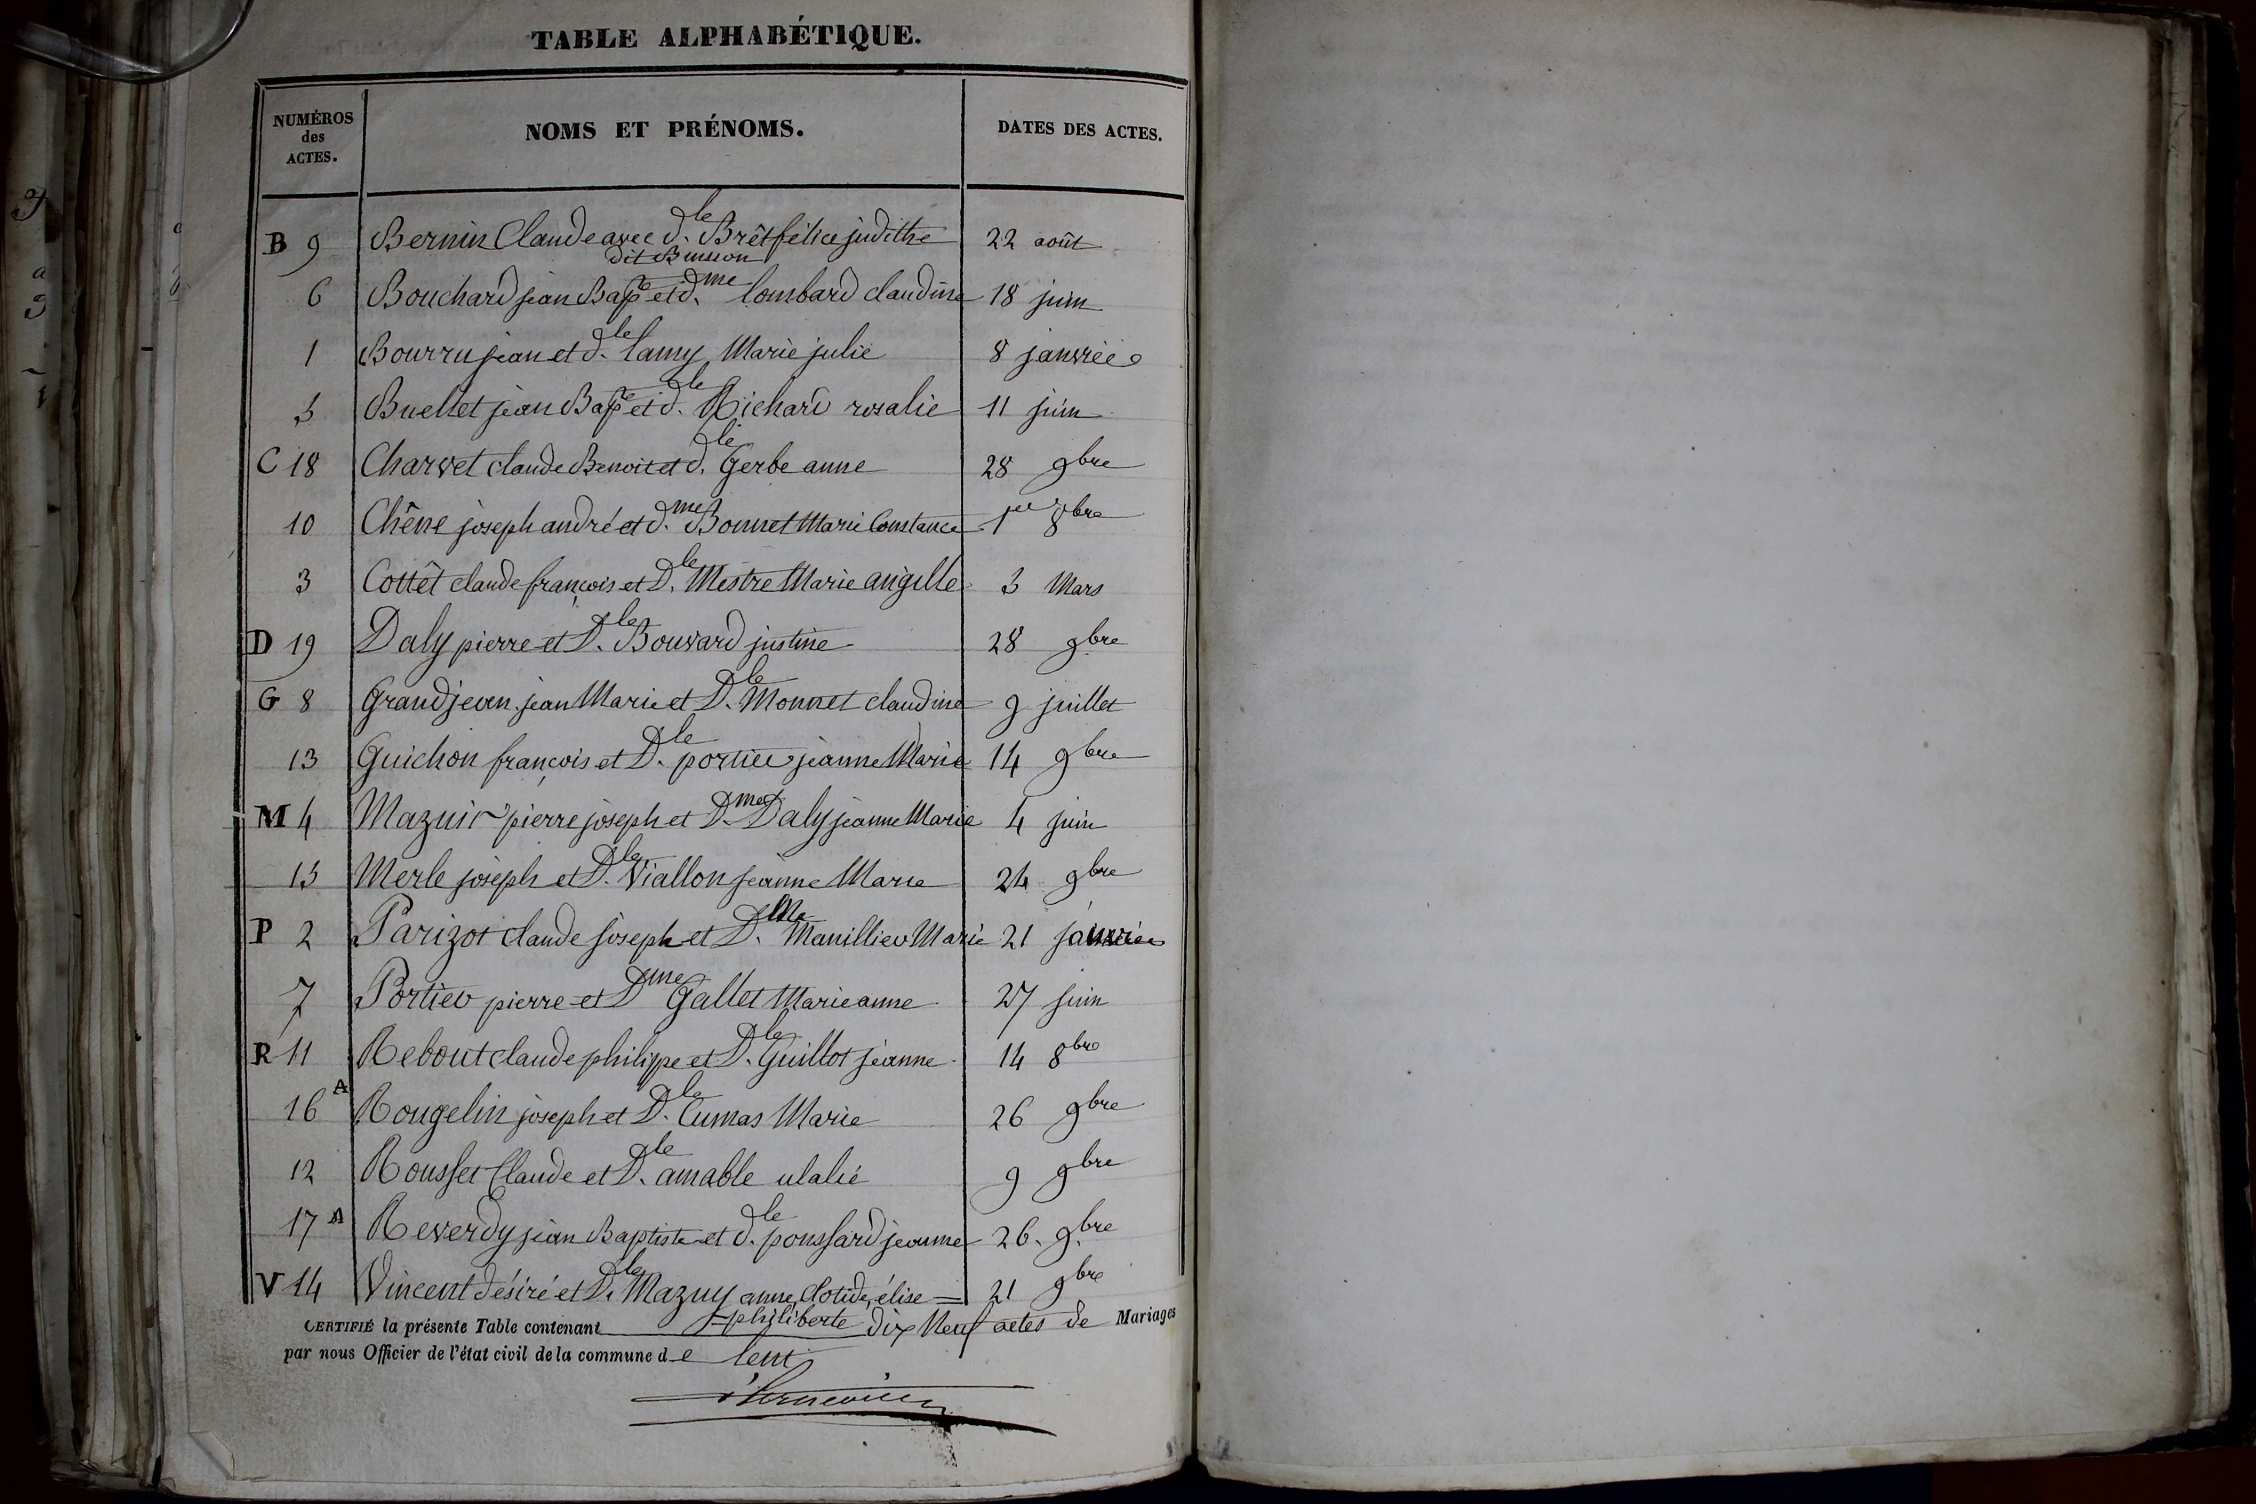 TABLE ALPHABÉTIQUE.
NUMÉROS des ACTES. NOMS ET PRÉNOMS. DATES DES ACTES.
B 9 Bernin Claude avec d.le Brêt félice judithe 22 août
dit Buisson
6 Bouchard jean Bapte et d.me Lombard claudine 18 juin
1 Bourru jean et d.le Lamy Marie julie 8 janvier
5 Buellet jean Bapte et d.le Richard rosalie 11 juin
C 18 Charvet claude Benoit et d.le Gerbe anne 28 9bre
10 Chêne joseph andré et d.me Bonnet Marie Constance 1er 8bre
3 Cottêt claude françois et D.le Mestre Marie angille 3 Mars
D 19 Daly pierre et D.le Bouvard justine 28 9bre
G 8 Grandjean jean Marie et D.le Monnet claudine 9 juillet
13 Guichon françois et D.le portier jeanne Marie 14 9bre
M 4 Mazuir pierre joseph et D.me Daly jeanne Marie 4 juin
15 Merle joseph et D.le Viallon jeanne Marie 24 9bre
P 2 Parizot claude joseph et D.lle Manillier Marie 21 janvier
7 Portier pierre et Dme Gallet Marie anne 27 juin
R 11 Rebout claude philippe et D.le Guillot jeanne 14 8bre
16 A Rougelin joseph et D.le Cumas Marie 26 9bre
12 Rousset Claude et D.le amable ulalie 9 9bre
17 A Reverdy jean Baptiste et d.le poussard jeanne 26. 9bre
V 14 Vincent désiré et D.le Mazuy anne, Clotide, élise = 21 9bre
CERTIFIÉ la présente Table contenant =philiberte dix Neuf actes de Mariages
par nous Officier de l'état civil de la commune de Lent